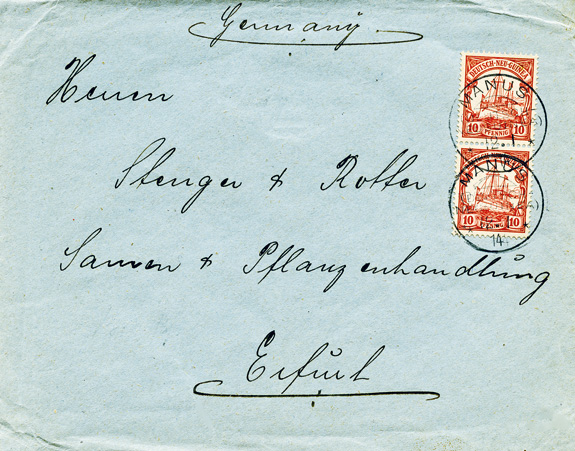 Germany.
Herren
Stenger & Rotter
Samen & Pflanzenhandlung
Erfurt
DEUTSCH-NEU-GUINEA
10 PFENNIG 10
MANUS
12.1
DEUTSCH-NEU-GUINEA
10 PFENNIG 10
MANUS
14